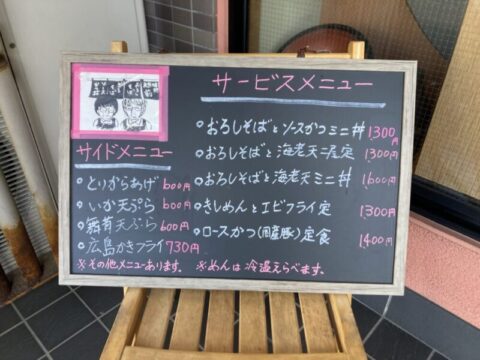 サービスメニュー
おろしそばとソースかつミニ丼 1,300円
おろしそばと海老天二尾定 1300円
おろしそばと海老天ミニ丼 1600円
きしめんとエビフライ定 1300円
ロースかつ(国産豚)定食 1400円
サイドメニュー
とりからあげ 600円
いか天ぷら 600円
舞茸天ぷら 600円
広島かきフライ 730円
※その他メニューあります。 ※めんは冷温えらべます。